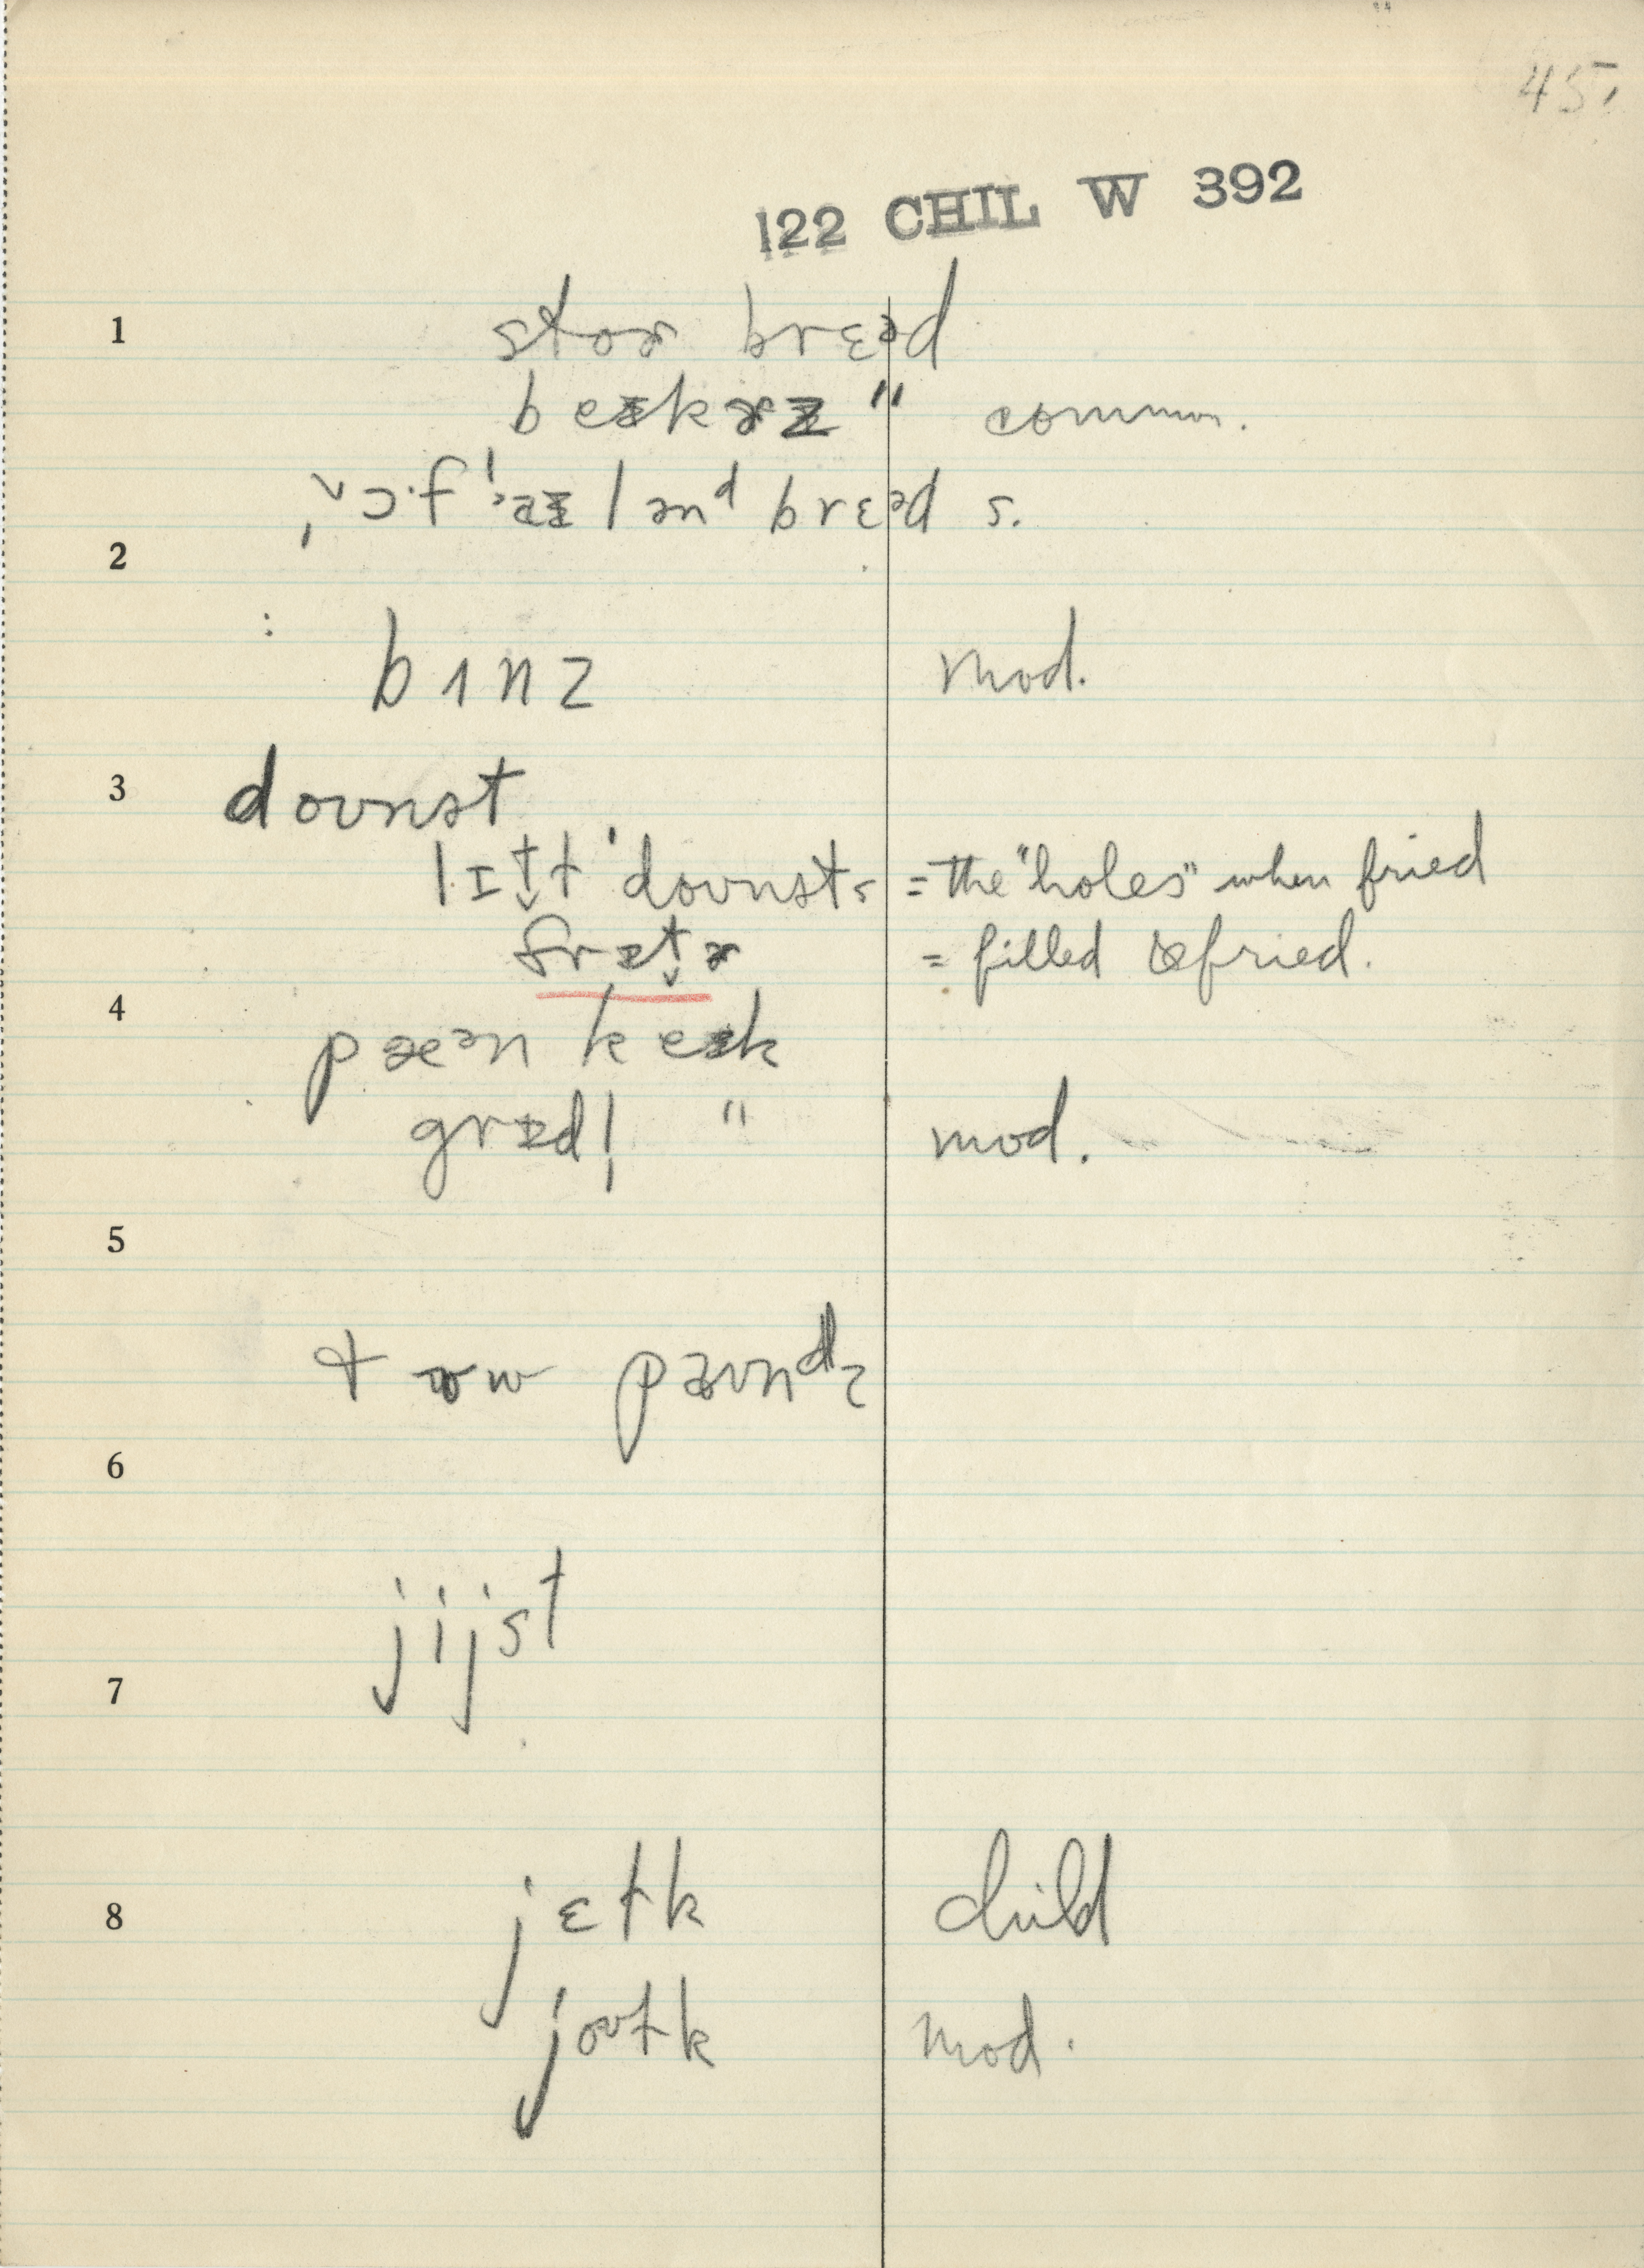 45.
122 CHIL W 392
1 stoɚ brɛəd
beɪkɚz " common.
lænd brɛəd s.
2
bɪnz mod.
3 dounət
lɪt̬ḷ 'dounəts = the "holes" when fried
frɪt̬ɚ = filled & fried.
4
pæən keɪk
grɪdḷ " mod.
5
paʊnᵈz
6
jijst
7
8 jɛłk child
joʊłk mod.